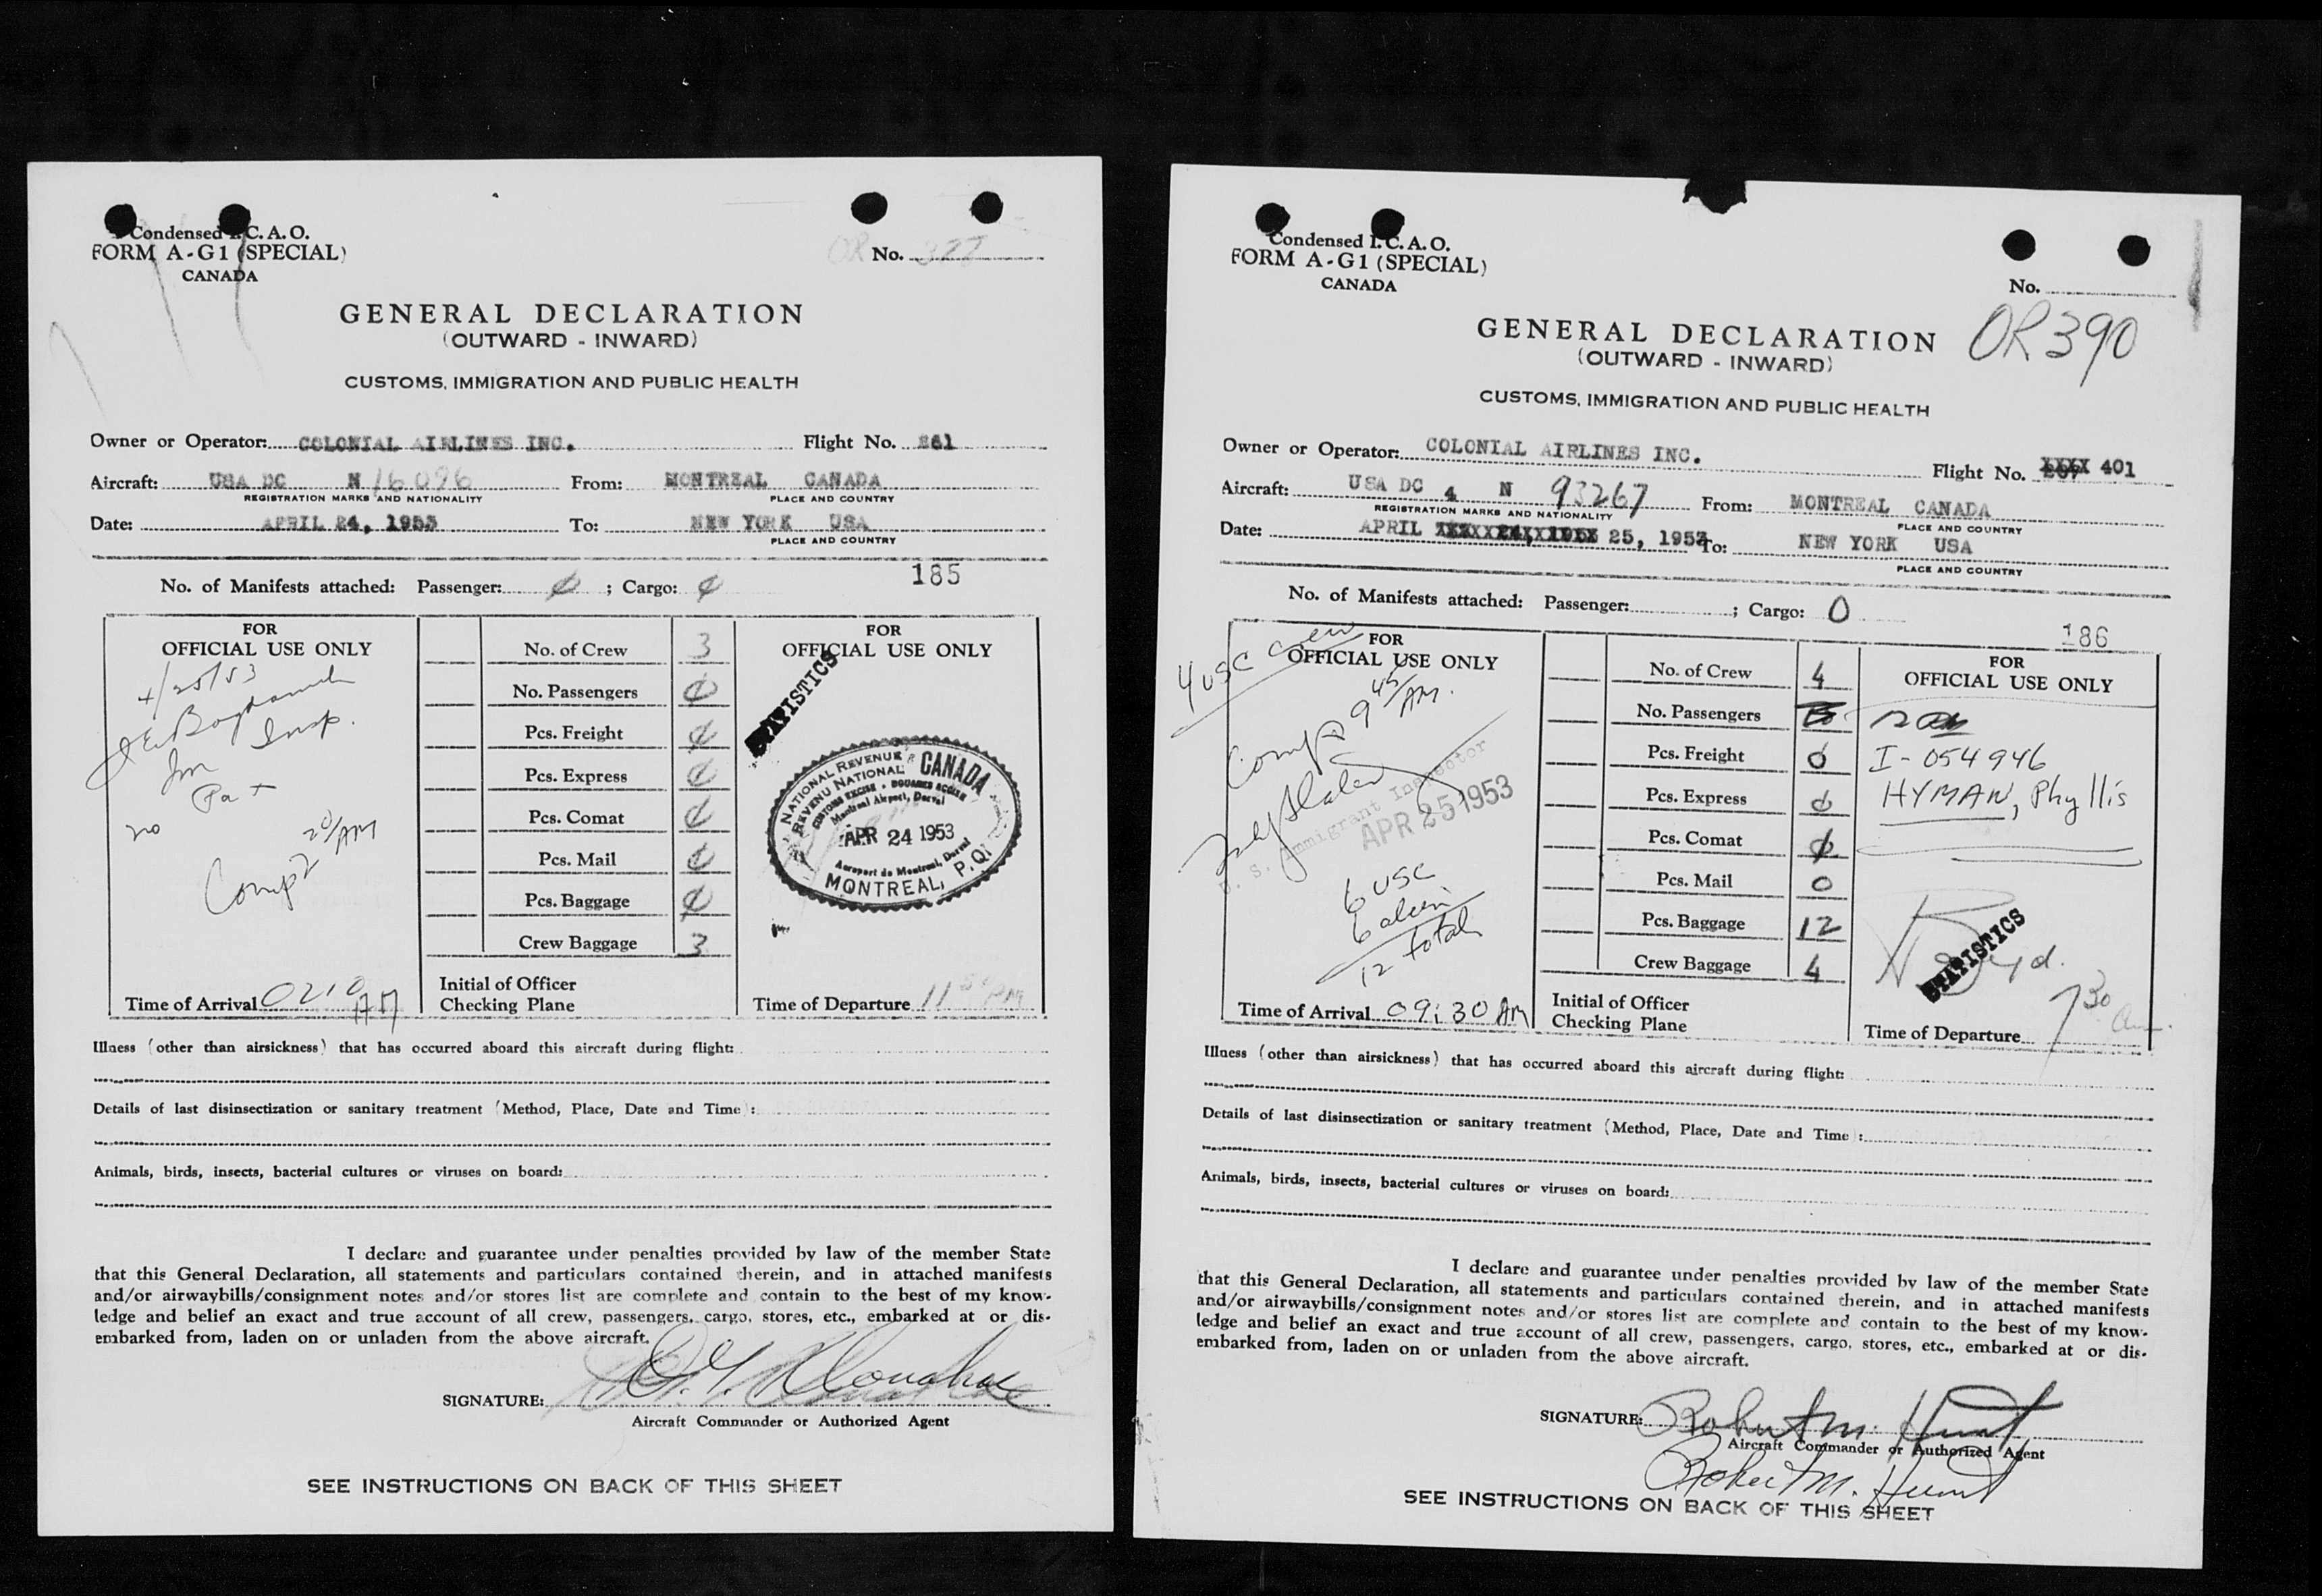 Condensed I.C.A.O.
FORM A-G1 (SPECIAL)
CANADA
OR No. 377
GENERAL DECLARATION
(OUTWARD - INWARD)
CUSTOMS, IMMIGRATION AND PUBLIC HEALTH
Owner or Operator: COLONIAL AIRLINES INC. Flight No. 261
Aircraft: USA DC N 16096 From: MONTREAL CANADA
REGISTRATION MARKS AND NATIONALITY PLACE AND COUNTRY
Date: APRIL 24, 1953 To: NEW YORK USA
PLACE AND COUNTRY
185
No. of Manifests attached: Passenger: 0 ; Cargo: 0
FOR
OFFICIAL USE ONLY
4/25/53
Insp.
no
Comp 2 20/AM
Time of Arrival 0210 AM
No. of Crew 3
No. Passengers 0
Pcs. Freight 0
Pcs. Express 0
Pcs. Comat 0
Pcs. Mail 0
Pcs. Baggage 0
Crew Baggage 3
Initial of Officer
Checking Plane
FOR
OFFICIAL USE ONLY
STATISTICS
NATIONAL REVENUE CANADA
REVENU NATIONAL
CUSTOMS EXCISE - DOUANES ACCISE
Montreal Airport, Dorval
APR 24 1953
Aeroport de Montreal, Dorval
MONTREAL, P.Q.
Time of Departure 11 50 PM
Illness (other than airsickness) that has occurred aboard this aircraft during flight:
Details of last disinsectization or sanitary treatment (Method, Place, Date and Time):
Animals, birds, insects, bacterial cultures or viruses on board:
I declare and guarantee under penalties provided by law of the member State
that this General Declaration, all statements and particulars contained therein, and in attached manifests
and/or airwaybills/consignment notes and/or stores list are complete and contain to the best of my know-
ledge and belief an exact and true account of all crew, passengers, cargo, stores, etc., embarked at or dis-
embarked from, laden on or unladen from the above aircraft.
SIGNATURE:
Aircraft Commander or Authorized Agent
SEE INSTRUCTIONS ON BACK OF THIS SHEET
Condensed I.C.A.O.
FORM A-G1 (SPECIAL)
CANADA
No.
OR 390
GENERAL DECLARATION
(OUTWARD - INWARD)
CUSTOMS, IMMIGRATION AND PUBLIC HEALTH
Owner or Operator: COLONIAL AIRLINES INC. Flight No. 401
Aircraft: USA DC 4 N 93267 From: MONTREAL CANADA
REGISTRATION MARKS AND NATIONALITY PLACE AND COUNTRY
Date: APRIL 25, 1953 To: NEW YORK USA
PLACE AND COUNTRY
No. of Manifests attached: Passenger: ; Cargo: 0
186
FOR
OFFICIAL USE ONLY
4 USC crew
Comp 9 45/AM.
U. S. Immigrant Inspector
APR 25 1953
6 USC
6 alien
12 total
Time of Arrival 09:30 AM
No. of Crew 4
No. Passengers
Pcs. Freight 0
Pcs. Express 0
Pcs. Comat 0
Pcs. Mail 0
Pcs. Baggage 12
Crew Baggage 4
Initial of Officer
Checking Plane
FOR
OFFICIAL USE ONLY
I-054946
HYMAN, Phyllis
STATISTICS
Time of Departure 7 30 am.
Illness (other than airsickness) that has occurred aboard this aircraft during flight:
Details of last disinsectization or sanitary treatment (Method, Place, Date and Time):
Animals, birds, insects, bacterial cultures or viruses on board:
I declare and guarantee under penalties provided by law of the member State
that this General Declaration, all statements and particulars contained therein, and in attached manifests
and/or airwaybills/consignment notes and/or stores list are complete and contain to the best of my know-
ledge and belief an exact and true account of all crew, passengers, cargo, stores, etc., embarked at or dis-
embarked from, laden on or unladen from the above aircraft.
SIGNATURE: Robert M. Hunt
Aircraft Commander or Authorized Agent
Robert M. Hunt
SEE INSTRUCTIONS ON BACK OF THIS SHEET